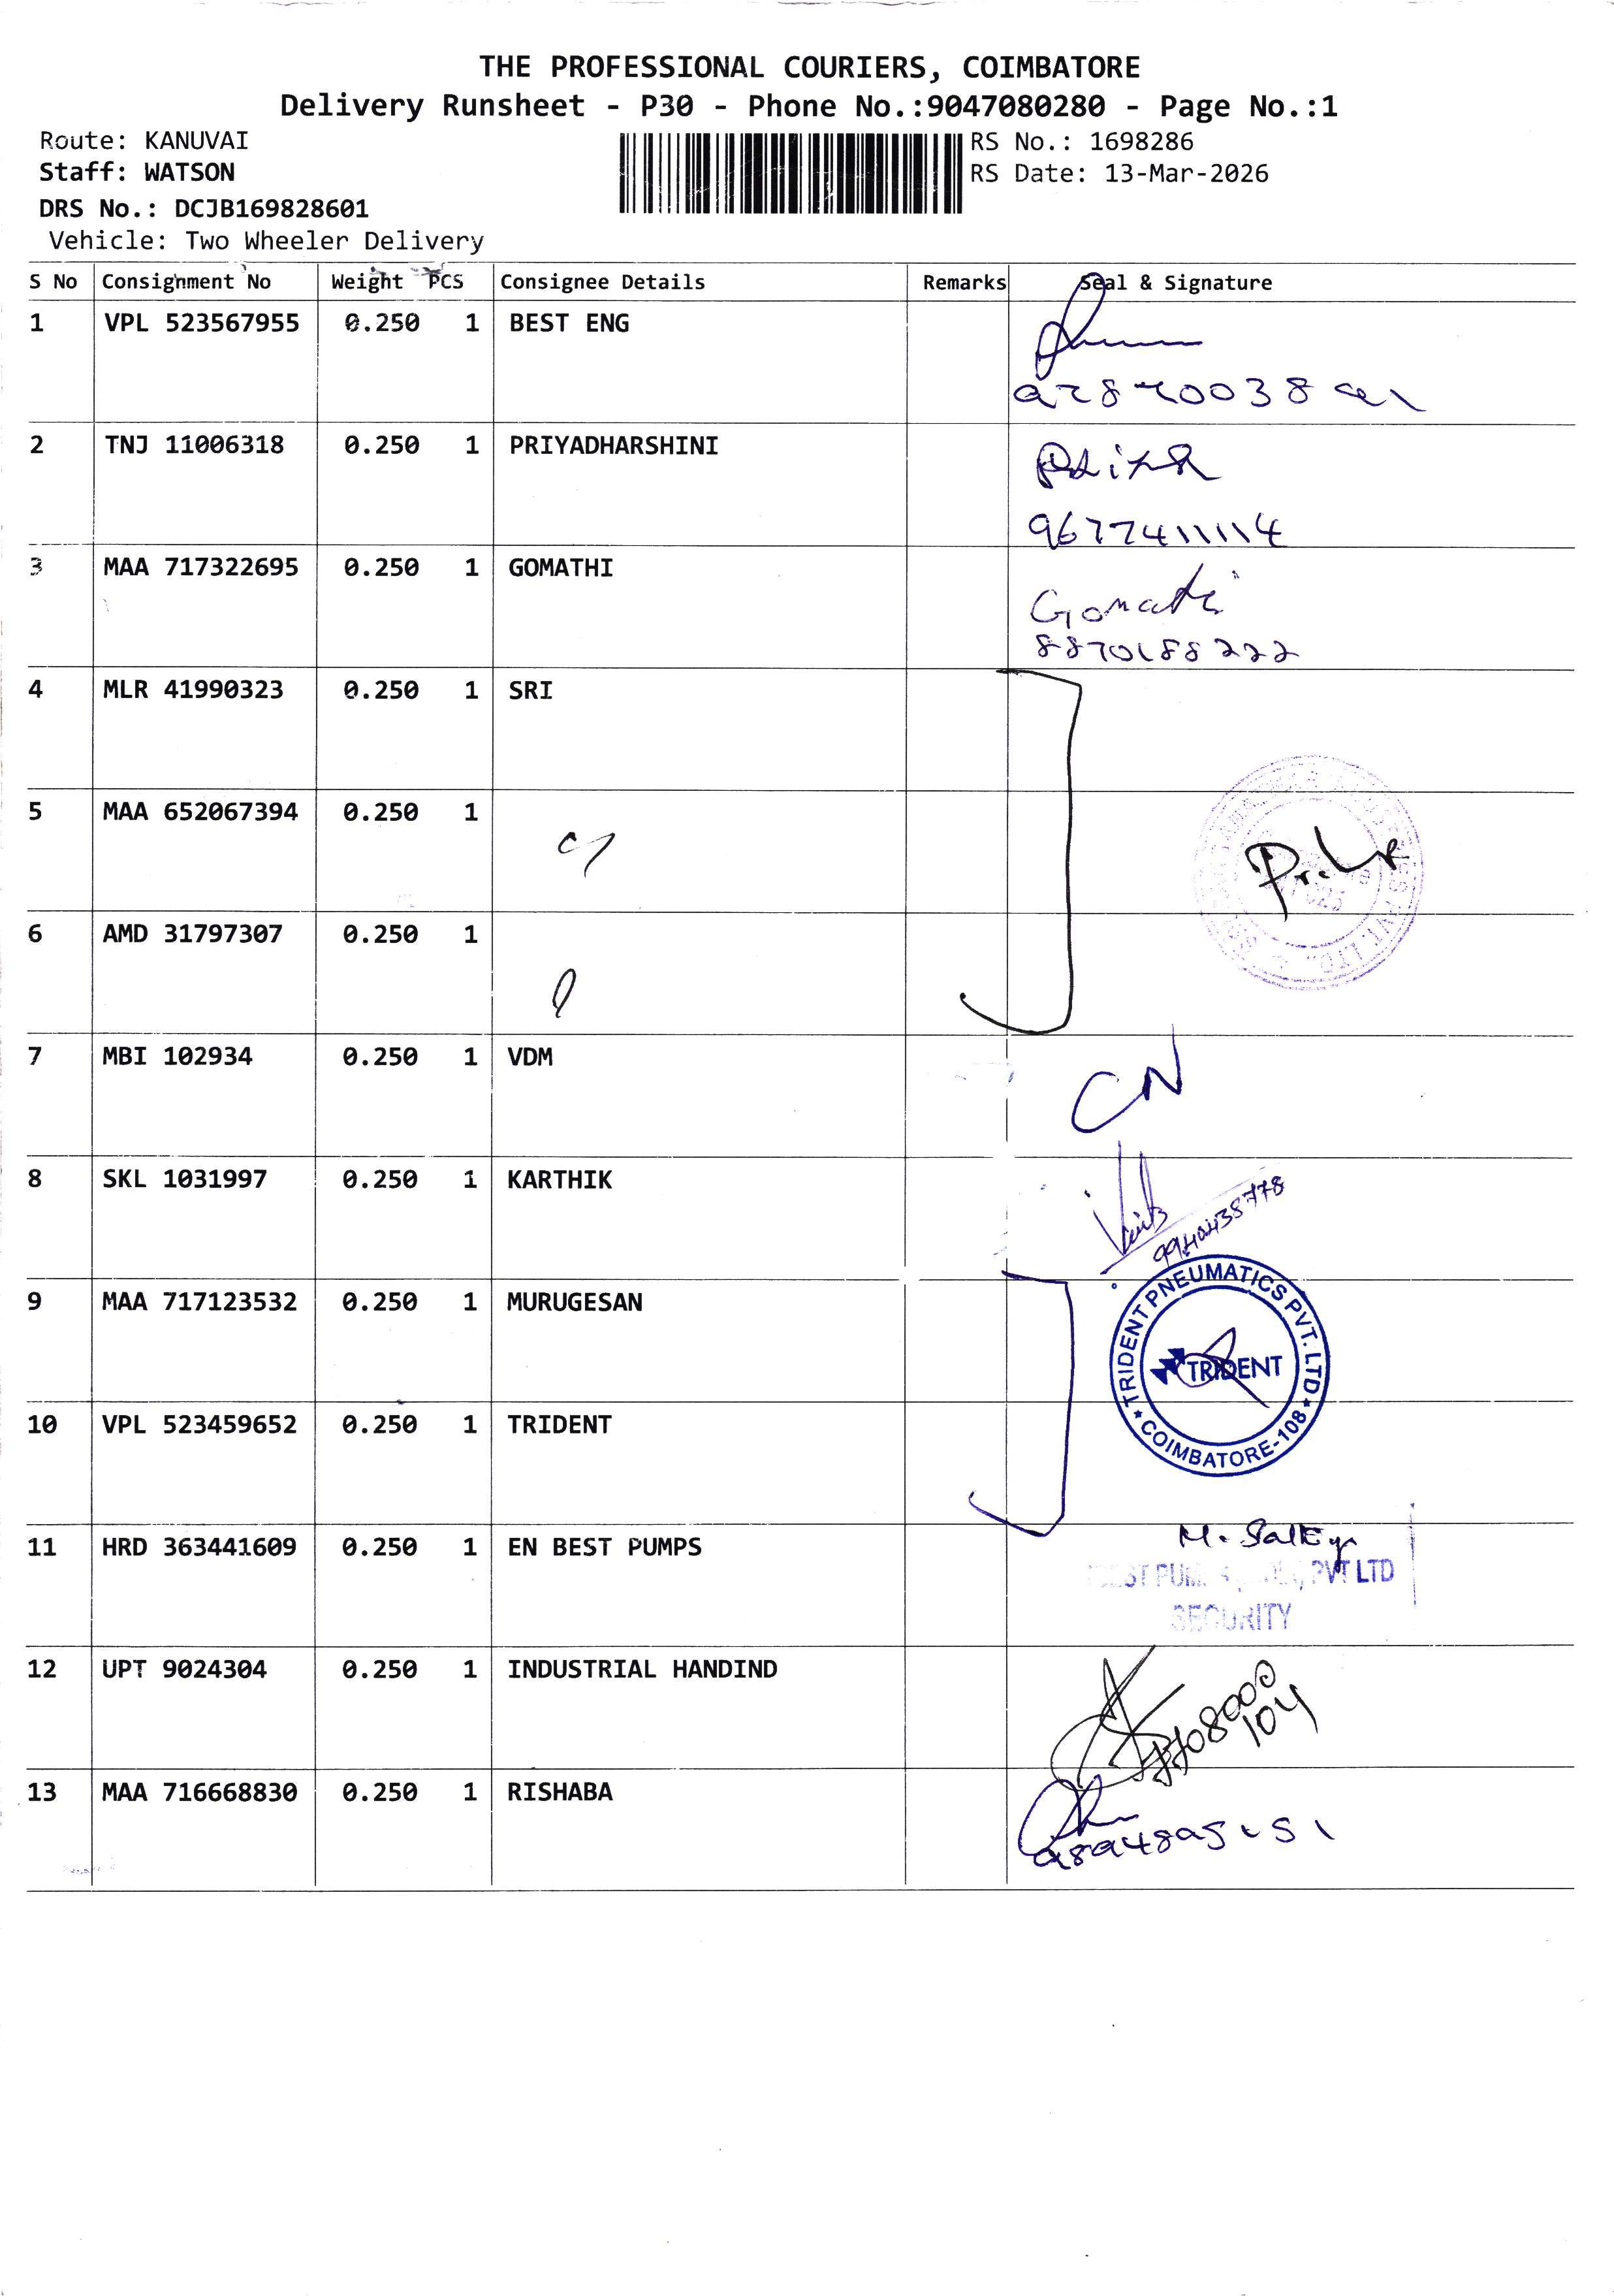 THE PROFESSIONAL COURIERS, COIMBATORE
Delivery Runsheet - P30 - Phone No.:9047080280 - Page No.:1
Route: KANUVAI
RS No.: 1698286
Staff: WATSON
RS Date: 13-Mar-2026
DRS No.: DCJB169828601
Vehicle: Two Wheeler Delivery
S No Consignment No Weight PCS Consignee Details Remarks Seal & Signature
1 VPL 523567955 0.250 1 BEST ENG
2 TNJ 11006318 0.250 1 PRIYADHARSHINI
9677411114
3 MAA 717322695 0.250 1 GOMATHI
Gomathi
8870188222
4 MLR 41990323 0.250 1 SRI
5 MAA 652067394 0.250 1
6 AMD 31797307 0.250 1
PVT. LTD.
7 MBI 102934 0.250 1 VDM
CN
8 SKL 1031997 0.250 1 KARTHIK
9 MAA 717123532 0.250 1 MURUGESAN
TRIDENT PNEUMATICS PVT. LTD
TRIDENT
COIMBATORE-108
10 VPL 523459652 0.250 1 TRIDENT
11 HRD 363441609 0.250 1 EN BEST PUMPS
PVT LTD
SECURITY
12 UPT 9024304 0.250 1 INDUSTRIAL HANDIND
13 MAA 716668830 0.250 1 RISHABA